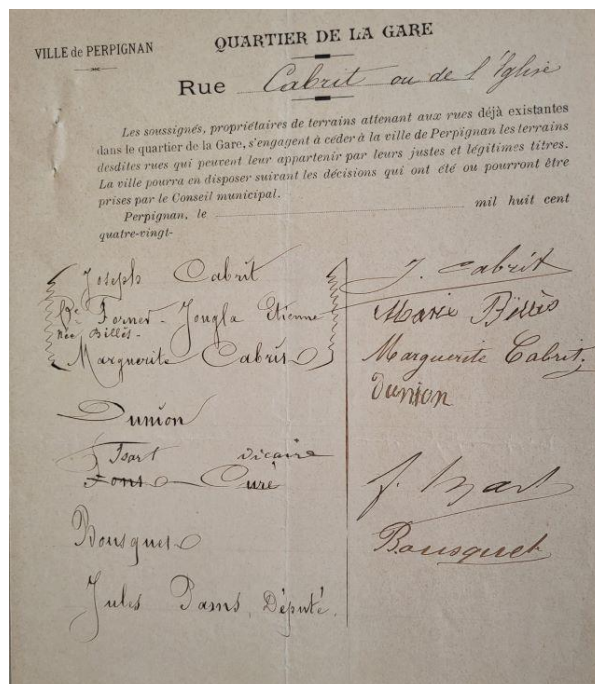 VILLE de PERPIGNAN
QUARTIER DE LA GARE
Rue Cabrit ou de l'Eglise
Les soussignés, propriétaires de terrains attenant aux rues déjà existantes
dans le quartier de la Gare, s'engagent à céder à la ville de Perpignan les terrains
desdites rues qui peuvent leur appartenir par leurs justes et légitimes titres.
La ville pourra en disposer suivant les décisions qui ont été ou pourront être
prises par le Conseil municipal.
Perpignan, le mil huit cent
quatre-vingt-
Joseph Cabrit
J. Cabrit
Ve Forner - Jougla Etienne
Marie Billès
née Billès -
Marguerite Cabrit
Marguerite Cabrit
Dunion
Dunion
Isart vicaire
Fons Curé
f. Izart
Bousquet
Bousquet
Jules Pams, Député.